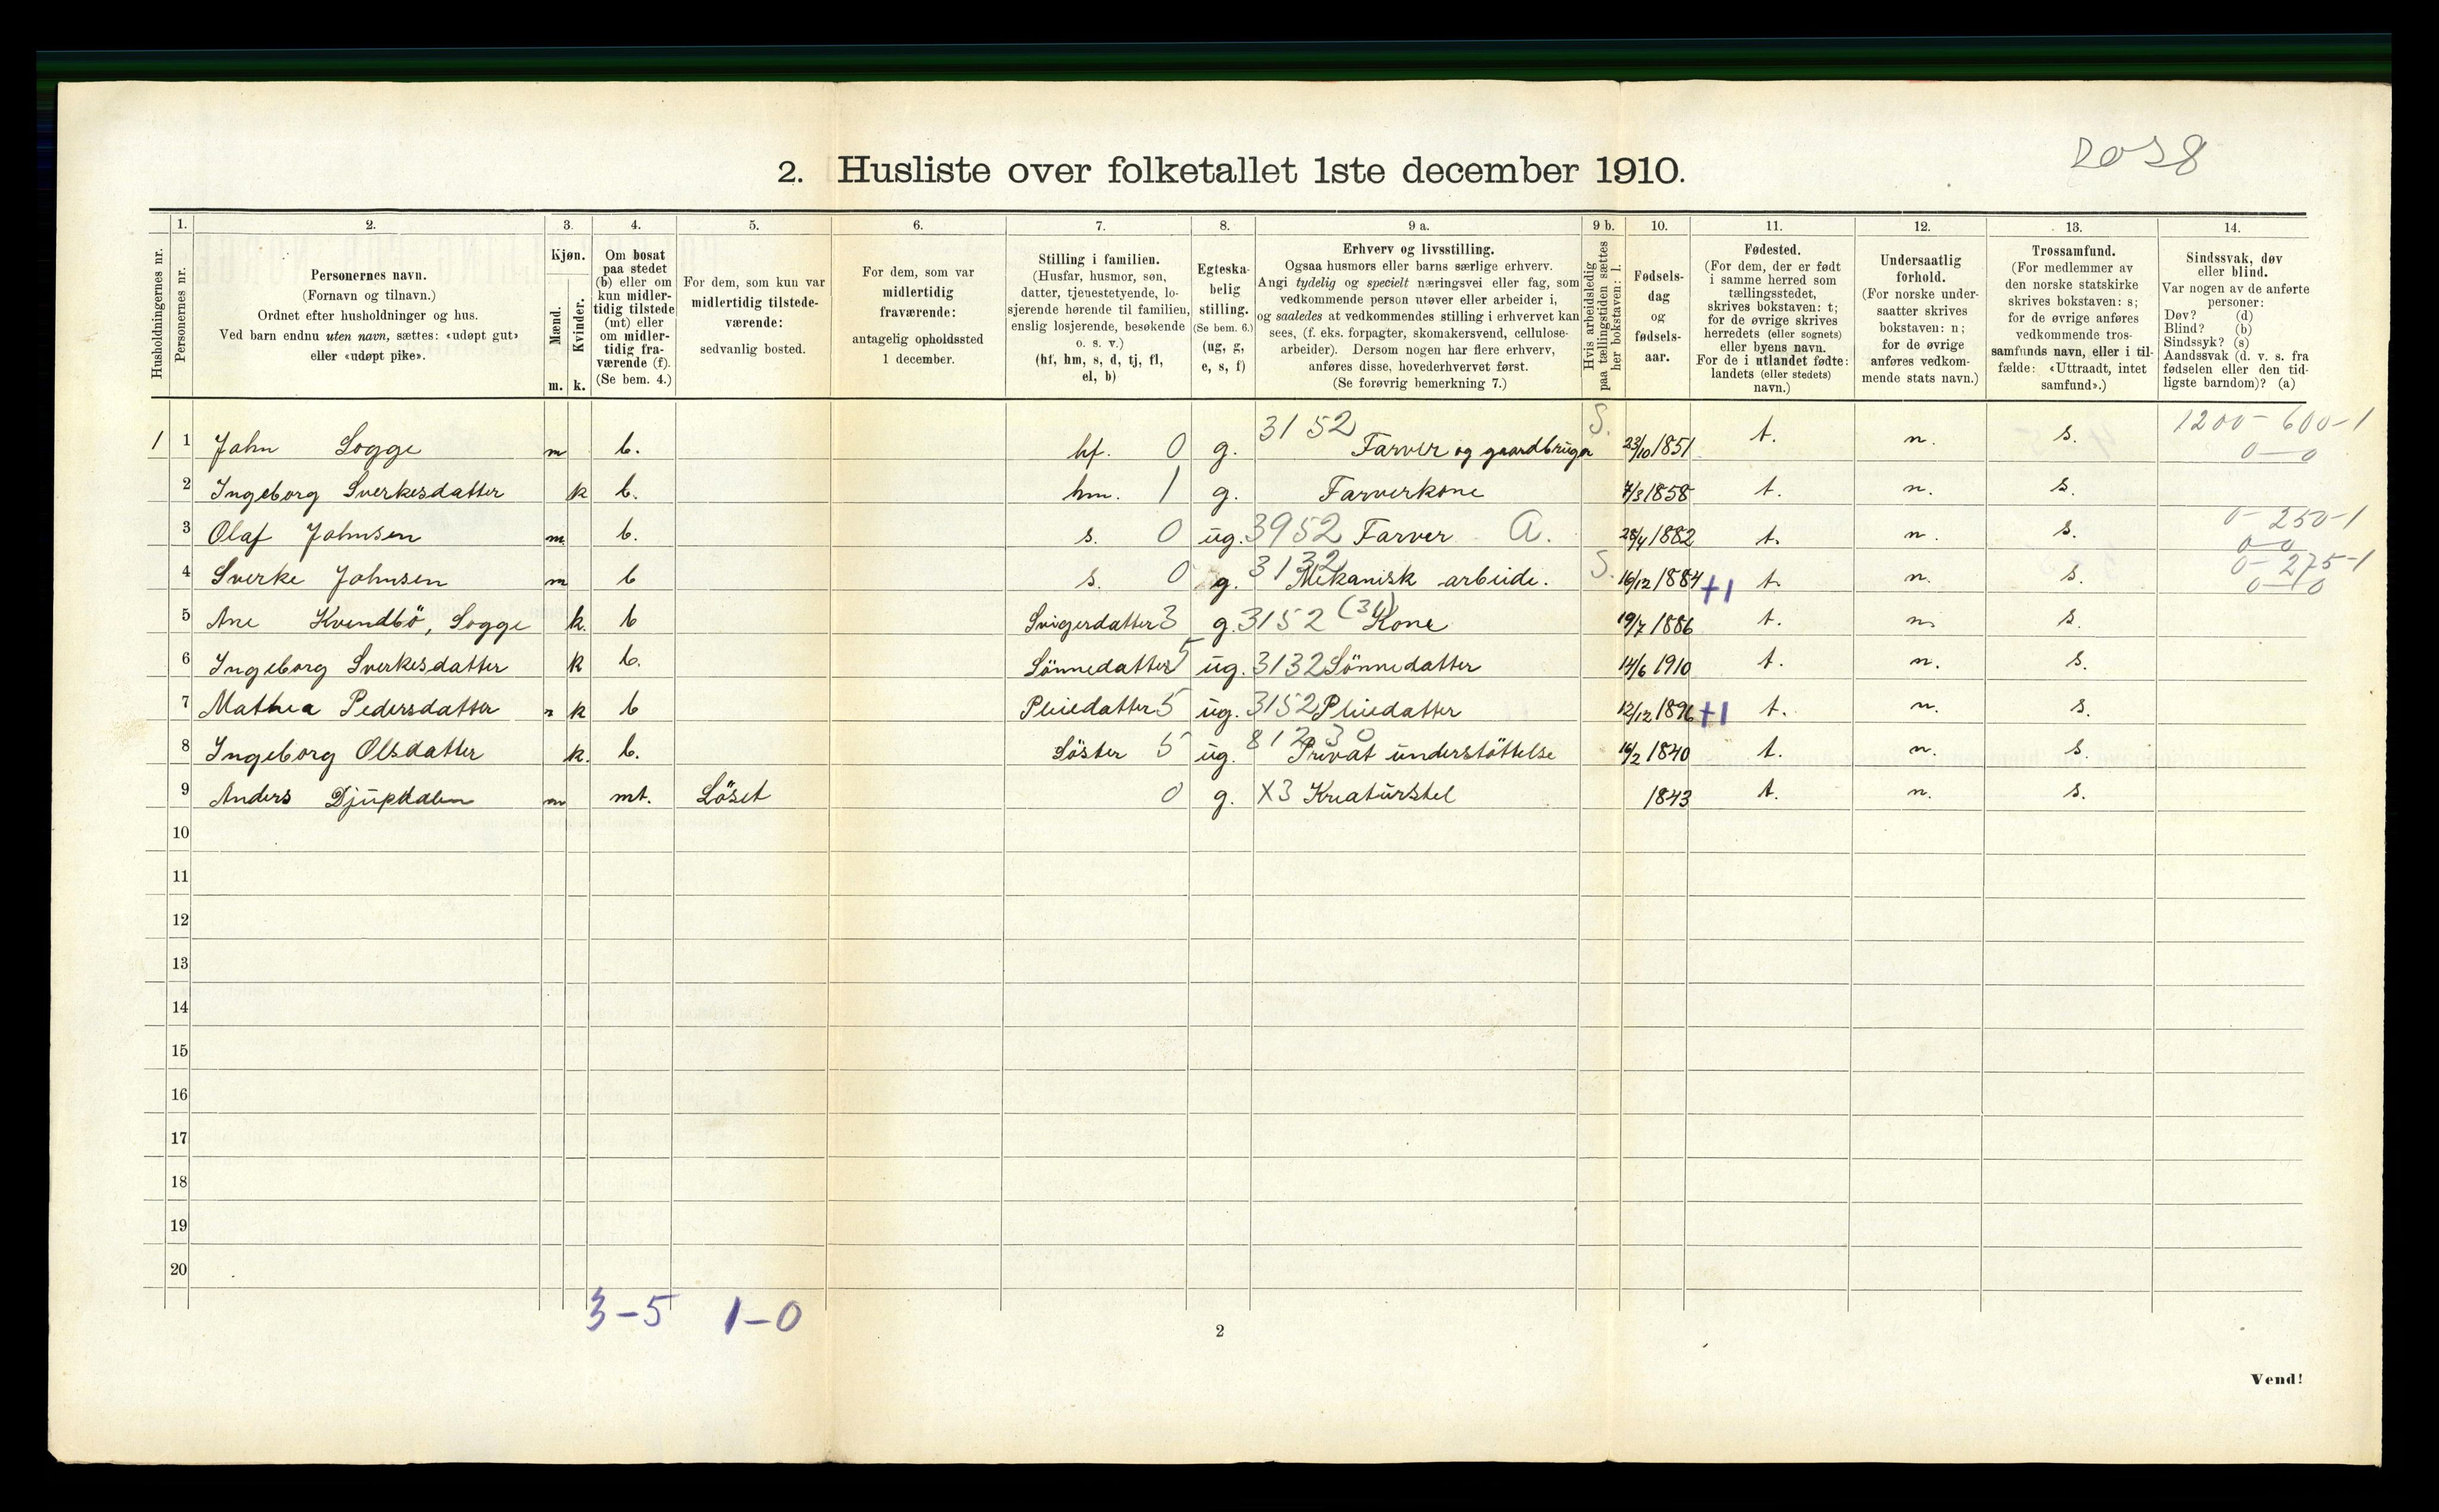 2038
2. Husliste over folketallet 1ste december 1910.
1. 2. 3. 4. 5. 6. 7. 8. 9 a. 9 b. 10. 11. 12. 13. 14.
Husholdningernes nr.
Personernes nr.
Personernes navn.
(Fornavn og tilnavn.)
Ordnet efter husholdninger og hus.
Ved barn endnu uten navn, sættes: «udøpt gut»
eller «udøpt pike».
Kjøn.
Mænd.
Kvinder.
m. k.
Om bosat
paa stedet
(b) eller om
kun midler-
tidig tilstede
(mt) eller
om midler-
tidig fra-
værende (f).
(Se bem. 4.)
For dem, som kun var
midlertidig tilstede-
værende:
sedvanlig bosted.
For dem, som var
midlertidig
fraværende:
antagelig opholdssted
1 december.
Stilling i familien.
(Husfar, husmor, søn,
datter, tjenestetyende, lo-
sjerende hørende til familien,
enslig losjerende, besøkende
o. s. v.)
(hf, hm, s, d, tj, fl,
el, b)
Egteska-
belig
stilling.
(Se bem. 6.)
(ug, g,
e, s, f)
Erhverv og livsstilling.
Ogsaa husmors eller barns særlige erhverv.
Angi tydelig og specielt næringsvei eller fag, som
vedkommende person utøver eller arbeider i,
og saaledes at vedkommendes stilling i erhvervet kan
sees, (f. eks. forpagter, skomakersvend, cellulose-
arbeider). Dersom nogen har flere erhverv,
anføres disse, hovederhvervet først.
(Se forøvrig bemerkning 7.)
Hvis arbeidsledig
paa tællingstiden sættes
her bokstaven: l.
Fødsels-
dag
og
fødsels-
aar.
Fødested.
(For dem, der er født
i samme herred som
tællingsstedet,
skrives bokstaven: t;
for de øvrige skrives
herredets (eller sognets)
eller byens navn.
For de i utlandet fødte:
landets (eller stedets)
navn.)
Undersaatlig
forhold.
(For norske under-
saatter skrives
bokstaven: n;
for de øvrige
anføres vedkom-
mende stats navn.)
Trossamfund.
(For medlemmer av
den norske statskirke
skrives bokstaven: s;
for de øvrige anføres
vedkommende tros-
samfunds navn, eller i til-
fælde: «Uttraadt, intet
samfund».)
Sindssvak, døv
eller blind.
Var nogen av de anførte
personer:
Døv? (d)
Blind? (b)
Sindssyk? (s)
Aandssvak (d. v. s. fra
fødselen eller den tid-
ligste barndom)? (a)
1 1 John Sogge m b. hf. 0 g. 3152 Farver og gaardbruger S. 23/10 1851 t. n. s. 1200-600-1 0-0
2 Ingeborg Sverkesdatter k b. hm. 1 g. Farverkone 7/3 1858 t. n. s.
3 Olaf Johnsen m b. s. 0 ug. 3952 Farver A. 28/4 1882 t. n. s. 0-250-1 0-0
4 Sverke Johnsen m b s. 0 g. 3132 Mekanisk arbeide. S. 16/12 1884 +1 t. n. s. 0-275-1 0-0
5 Ane Kvendbö, Sogge k. b Svigerdatter 3 g. 3152 (31) Kone 19/7 1886 t. n. s.
6 Ingeborg Sverkesdatter k b. Sönnedatter 5 ug. 3132 Sönnedatter 14/6 1910 t. n. s.
7 Mathea Pedersdatter k b Pleiedatter 5 ug. 3152 Pleiedatter 12/12 1896 +1 t. n. s.
8 Ingeborg Olsdatter k. b. Söster 5 ug. 81230 Privat understöttelse 16/2 1840 t. n. s.
9 Anders Djupdalen m mt. Löset 0 g. X3 Kreaturstel 1843 t. n. s.
10
11
12
13
14
15
16
17
18
19
20
3-5 1-0
2
Vend!